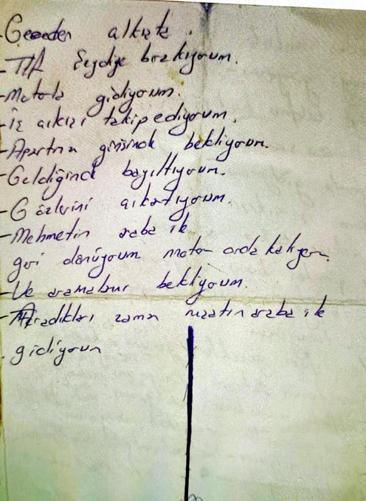 -Geceden alkışta.
-TIA Seyolye bırakıyorum.
-Motorla gidiyorum.
-İş çıkışı takip ediyorum.
-Apartman girişinde bekliyorum.
-Geldiğinde bayıltıyorum.
-Gözlerini çıkartıyorum.
-Mehmetin araba ile
geri dönüyorum motor orda kalıyor.
-Ve aramaları bekliyorum.
-Aradıkları zaman nizatın araba ile
gidiyorum